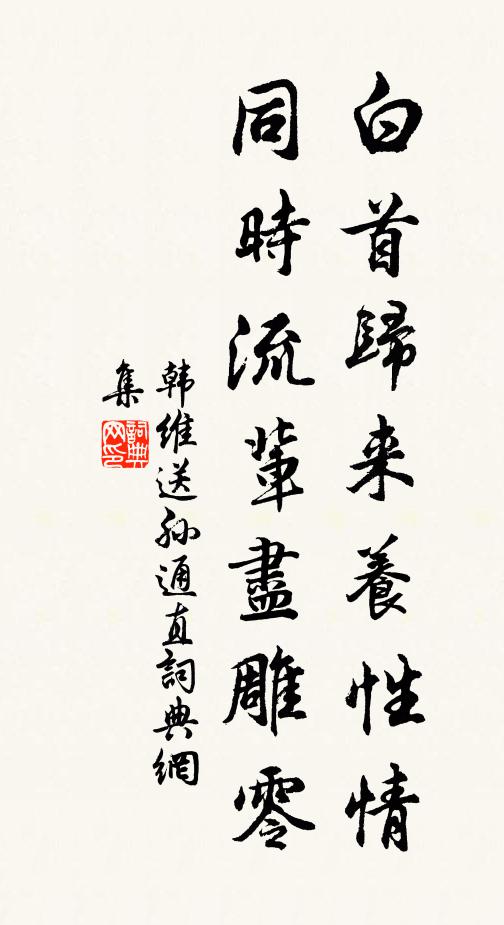 白首歸来養性情
同時流輩盡雕零
韩維送孙通直詞典網
集
詞典网印